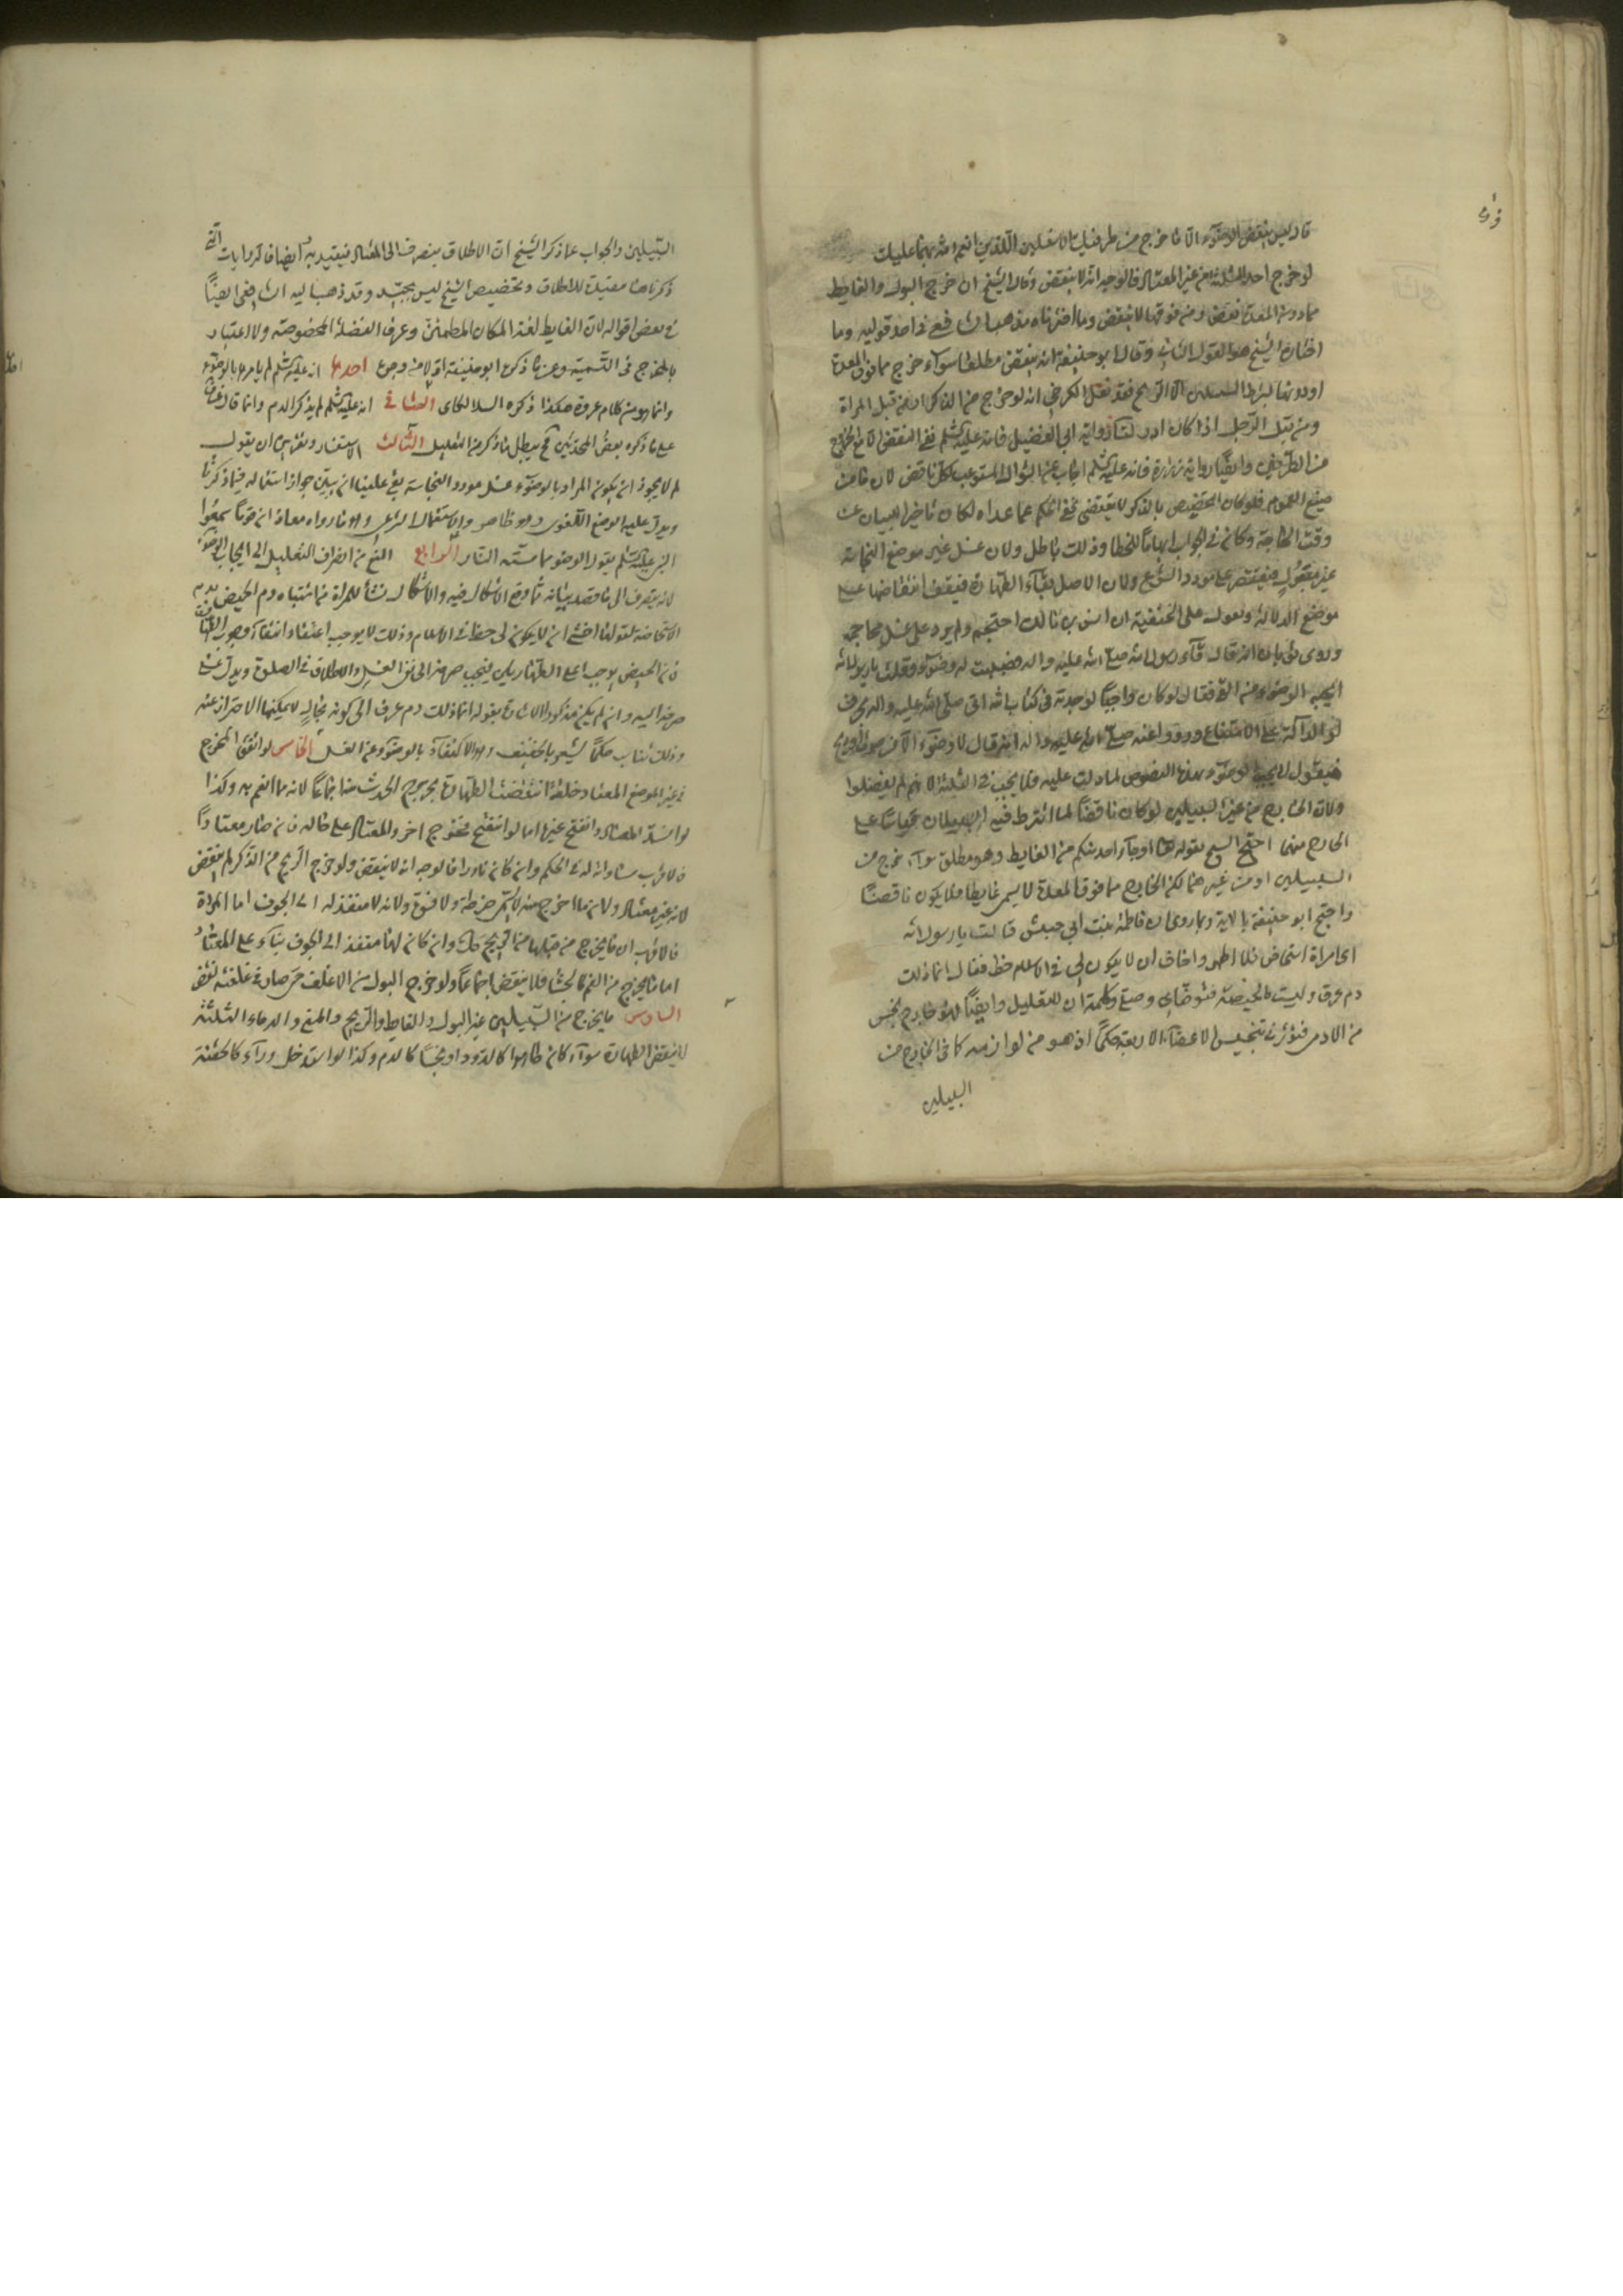 قال ليس ينقض الوضوء الا ما خرج من طرفيك الاسفلين اللذين انعم الله بهما عليك
لو خرج احد الثلثة من غير المعتاد فالوجه انه لا ينقض وقال الشيخ ان خرج البول والغايط
مما دون المعدة نقض ومن فوقها لا ينقض وما اخترناه مذهب الشافعي في احد قوليه وما
اختاره الشيخ هو القول الثاني وقال ابو حنيفة انه ينقض مطلقا سواء خرج مما فوق المعدة
او دونها السبيلين الا الريح فقد نقل الكرخي انه لو خرج من الذكر او من قبل المراة
ومن قبل الرجل اذا كان ادر لنا رواية ابي الفضيل فانه عليه السلم نفى النقض الا مع الخروج
من الطرفين وايضا رواية زرارة فانه عليه السلم اجاب عن السؤال المستوعب كل ناقض لان ما من
صيغ العموم فلو كان التخصيص بالذكر لا يقتضي نفي الحكم عما عداه لكان تاخيرا للبيان عن
وقت الحاجة وكان في الجواب ايهاما للخطا وذلك باطل ولان غسل غير موضع النجاسة
غير معقول فيقتصر على مورد الشرع ولان الاصل بقاء الطهارة فيقف انتقاضها على
موضع الدلالة ونقول على الحنفية ان انس بن مالك احتجم ولم يزد على غسل محاجمه
وروى ثوبان انه قال قاء رسول الله صلى الله عليه واله فصببت له وضوء وقلت يا رسول الله
ايجب الوضوء من القئ فقال لو كان واجبا لوجدته في كتاب الله اتى صلى الله عليه واله بحرف
لو الدالة على الامتناع ورووا عنه صلى الله عليه واله انه قال لا وضوء الا من صوت او ريح
فيقول لا يجب الوضوء بهذا النصوص لما دلت عليه فلا يجب في الثلثة لانهم لم يفصلوا
ولان الخارج من غير السبيلين لو كان ناقضا لما اشترط فيه السبيلان قياسا على
الخارج منهما احتج الشيخ بقوله تعالى او جاء احد منكم من الغايط وهو مطلق سواء خرج من
السبيلين او من غيرهما لكن الخارج مما فوق المعدة لا يسمى غايطا فلا يكون ناقضا
واحتج ابو حنيفة بالاية وبما روي ان فاطمة بنت ابي حبيش قالت يا رسول الله
اني امراة استحاض فلا اطهر واخاف ان لا يكون لي في الاسلام حظ فقال انما ذلك
دم عرق وليست بالحيضة فتوضاي وصلي وكلمة ان للتعليل وايضا خارج نجس
من الادمي فتؤثر في تنجيس الاعضاء الاربعة حكما اذ هو من لوازمه كما في الخارج من
السبيلين
السبيلين والجواب عما ذكر الشيخ ان الاطلاق ينصرف الى المعتاد فيتقيد به ايضا فالروايات التي
ذكرناها مقيدة للاطلاق وتخصيص الشيخ ليس بجيد وقد ذهب اليه الشافعي ايضا
في بعض اقواله لان الغايط لغة المكان المطمئن وعرفا الفضلة المخصوصة ولا اعتبار
بالمخارج في التسمية وعن ما ذكره ابو حنيفة اولا من وجوه احدها انه عليه السلم لم يامرها بالوضوء
وانما هو من كلام عروة هكذا ذكره اللالكاي الثاني انه عليه السلم لم يذكر الدم وانما قال
على ما ذكره بعض المحدثين فح يبطل ما ذكر من التعليل الثالث الاستفسار وتقريره ان يقول
لم لا يجوز ان يكون المراد بالوضوء غسل مورد النجاسة بقي علينا ان نبين جواز استعماله فيما ذكرنا
ويدل عليه الوضع اللغوي وهو ظاهر والاستعمال الشرعي وهو ما رواه معاذ ان قوما سمعوا
النبي عليه السلم يقول الوضوء مما مسته النار الرابع المنع من انصراف التعليل الى ايجاب الوضوء
لانه ينصرف الى ما قصد بيانه مما وقع الاشكال فيه والاشكال نشأ للمراة من اشتباه دم الحيض بدم
الاستحاضة لقولها اخشى ان لا يكون لي حظ في الاسلام وذلك لا يوجب اعتقاد انتفاء وجوب الطهارة
فان الحيض يوجب اعلى الطهارتين فيجب صرفه الى نفي الغسل والاطلاق في الصلوة ويدل على
صرفه اليه وان لم يكن مذكورا لانه بقوله انما ذلك دم عرف الى كونه بحال لا يمكنها الاحتراز عنه
وذلك يناسب حكما يشعر بالتخفيف وهو الاكتفاء بالوضوء عن الغسل الخامس لو اتفق المخرج
في غير الموضع المعتاد خلقة انتقضت الطهارة بخروج الحدث منه اجماعا لانه مما انعم به وكذا
لو انسد المعتاد وانفتح غيره اما لو انفتح مخرج اخر والمعتاد على حاله فان صار معتادا
فالاقرب مساواته له في الحكم وان كان نادرا فالوجه انه لا ينقض ولو خرج الريح من الذكر لم ينقض
لانه غير معتاد ولان ما اخرج منه لا يسمى ضرطة ولا فسوة ولانه لا منفذ له الى الجوف اما المراة
فالاقرب ان ما يخرج من قبلها من الريح كذلك وان كان لها منفذ الى الجوف بناء على المعتاد
اما ما يخرج من الفم كالجشا فلا ينقض اجماعا ولو خرج البول من الاغلف حتى صار في غلفته نقض
السادس ما يخرج من السبيلين غير البول والغايط والريح والمني والدماء الثلثة
لا ينقض الطهارة سواء كان طاهرا كالدود او نجسا كالدم وكذا لو استدخل دواء كالحقنة